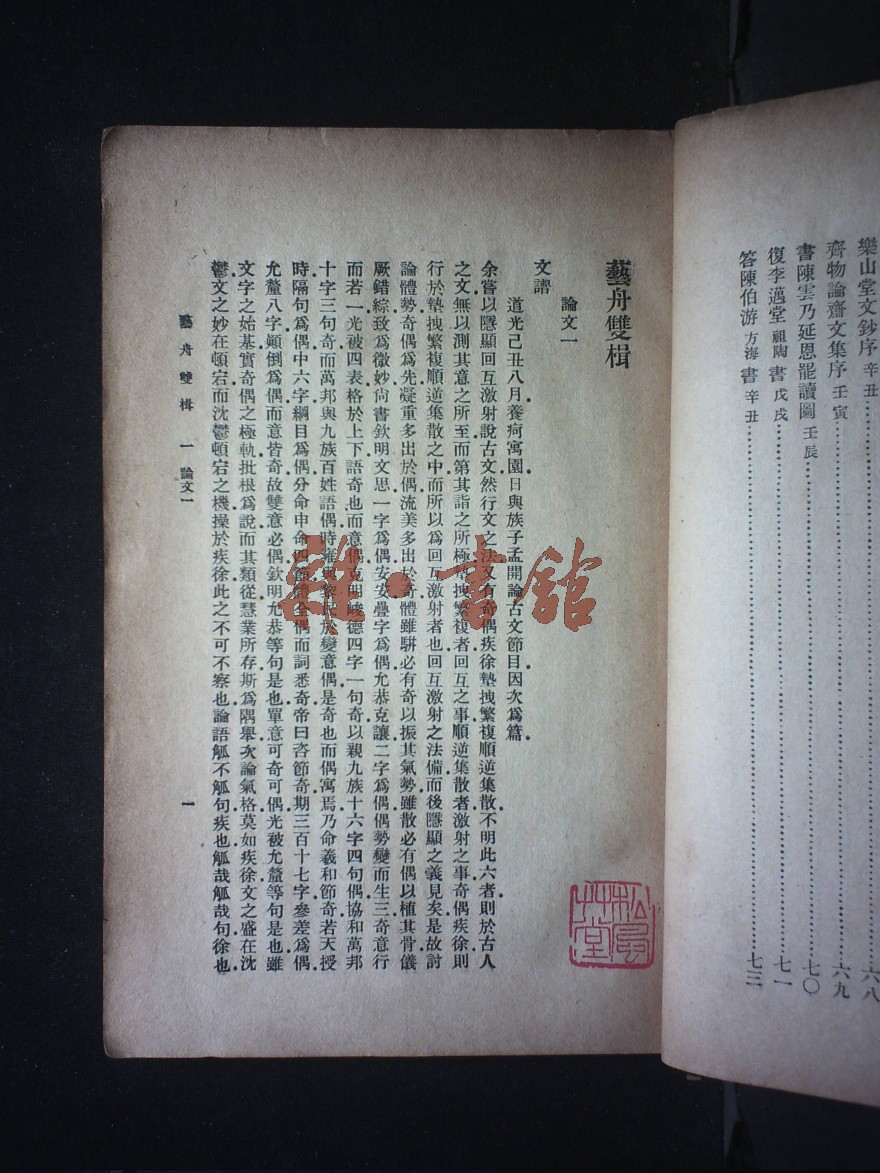 樂山堂文鈔序 辛丑……六八
齊物論齋文集序 壬寅……六九
書陳雲乃延恩罷讀圖 壬辰……七〇
復李邁堂 祖陶 書 戊戌……七一
答陳伯游 方海 書 辛丑……七三
藝舟雙楫
論文一
文譜
道光己丑八月養疴寓園日與族子孟開論古文節目因次爲篇
余嘗以隱顯回互激射說古文然行文之法又有奇偶疾徐墊拽繁複順逆集散不明此六者則於古人
之文無以測其意之所至而第其詣之所極墊拽繁複者回互之事順逆集散者激射之事奇偶疾徐則
行於墊拽繁複順逆集散之中而所以爲回互激射者也回互激射之法備而後隱顯之義見矣是故討
論體勢奇偶爲先凝重多出於偶流美多出於奇體雖駢必有奇以振其氣勢雖散必有偶以植其骨儀
厥錯綜致爲微妙尙書欽明文思一字爲偶安安疊字爲偶允恭克讓二字爲偶偶勢變而生三奇意行
而若一光被四表格於上下語奇也而意偶克明峻德四字一句奇以親九族十六字四句偶協和萬邦
十字三句奇而萬邦與九族百姓語偶時雍與黎民於變意偶是奇也而偶寓焉乃命羲和節奇若天授
時隔句爲偶中六字綱目爲偶分命申命四節體全偶而詞悉奇帝曰咨節奇期三百十七字參差爲偶
允釐八字顚倒爲偶而意皆奇故雙意必偶欽明允恭等句是也單意可奇可偶光被允釐等句是也雖
文字之始基實奇偶之極軌批根爲說而其類從慧業所存斯爲隅舉次論氣格莫如疾徐文之盛在沈
鬱文之妙在頓宕而沈鬱頓宕之機操於疾徐此之不可不察也論語觚不觚句疾也觚哉觚哉句徐也
藝舟雙楫 一 論文一
一
雜·書館